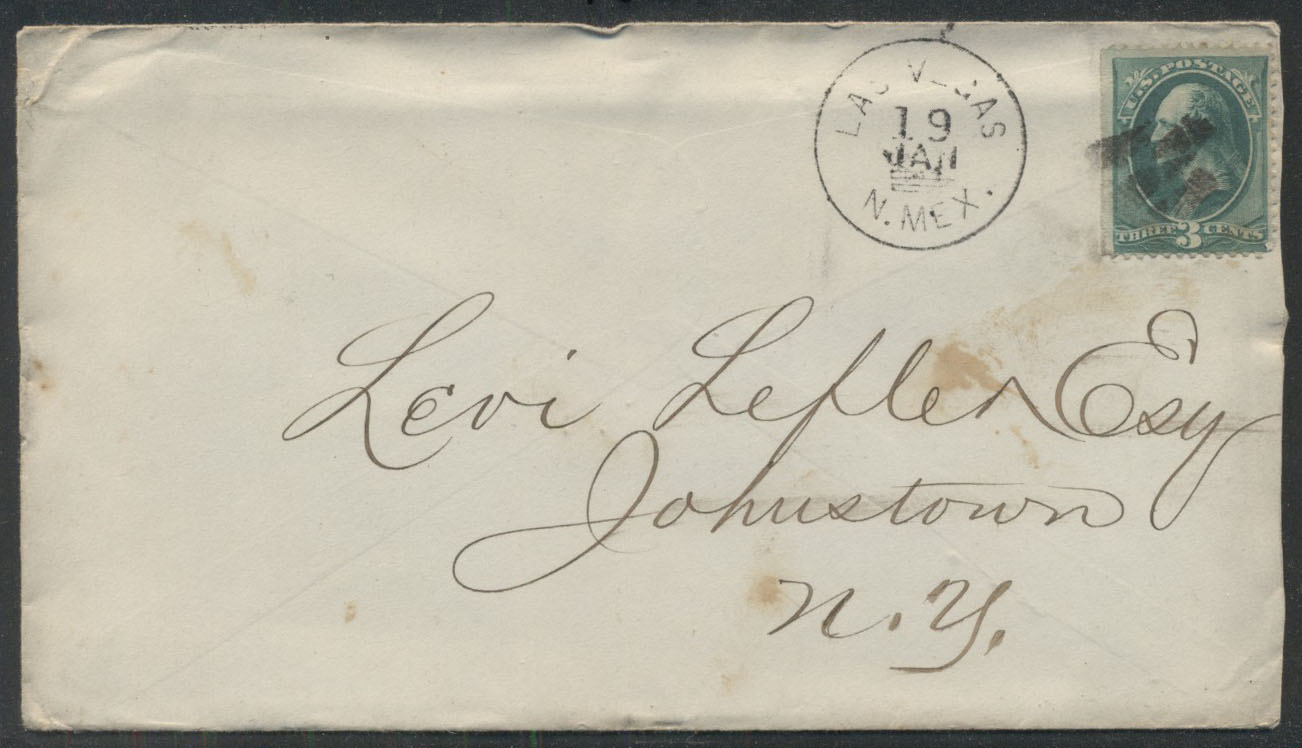 LAS VEGAS
19
JAN
N. MEX.
U.S. POSTAGE
THREE 3 CENTS
Levi Lefler Esq
Johnstown
N.Y.